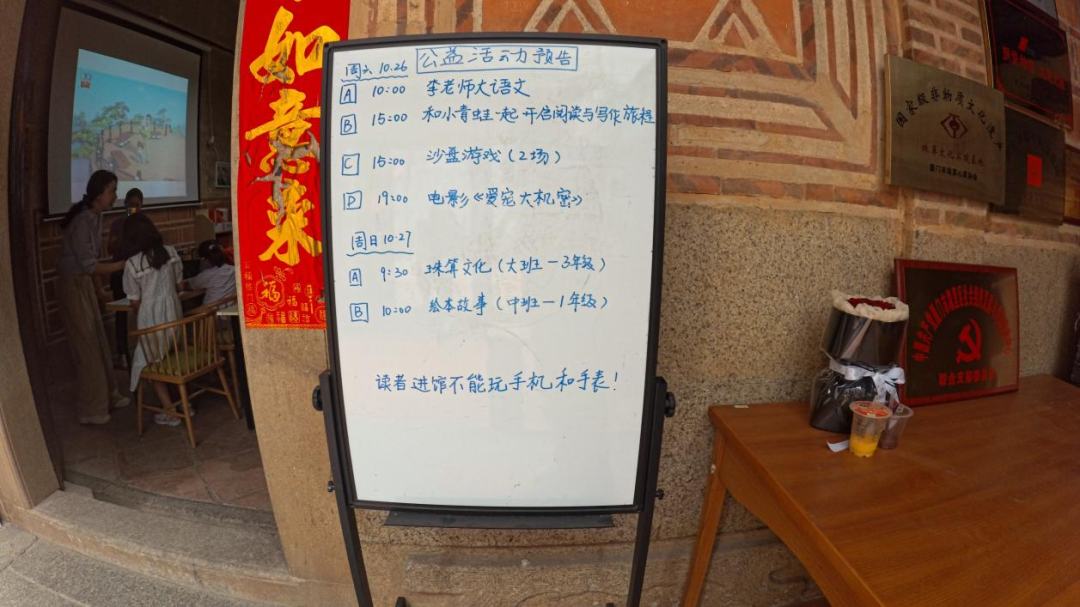 公益活动预告
周六 10.26
A 10:00 李老师大语文
B 15:00 和小青蛙一起开启阅读与写作旅程
C 15:00 沙盘游戏(2场)
D 19:00 电影《爱宠大机密》
周日 10.27
A 9:30 珠算文化(大班—3年级)
B 10:00 绘本故事(中班—1年级)
读者进馆不能玩手机和手表!
如意来
福
国家级非物质文化遗产